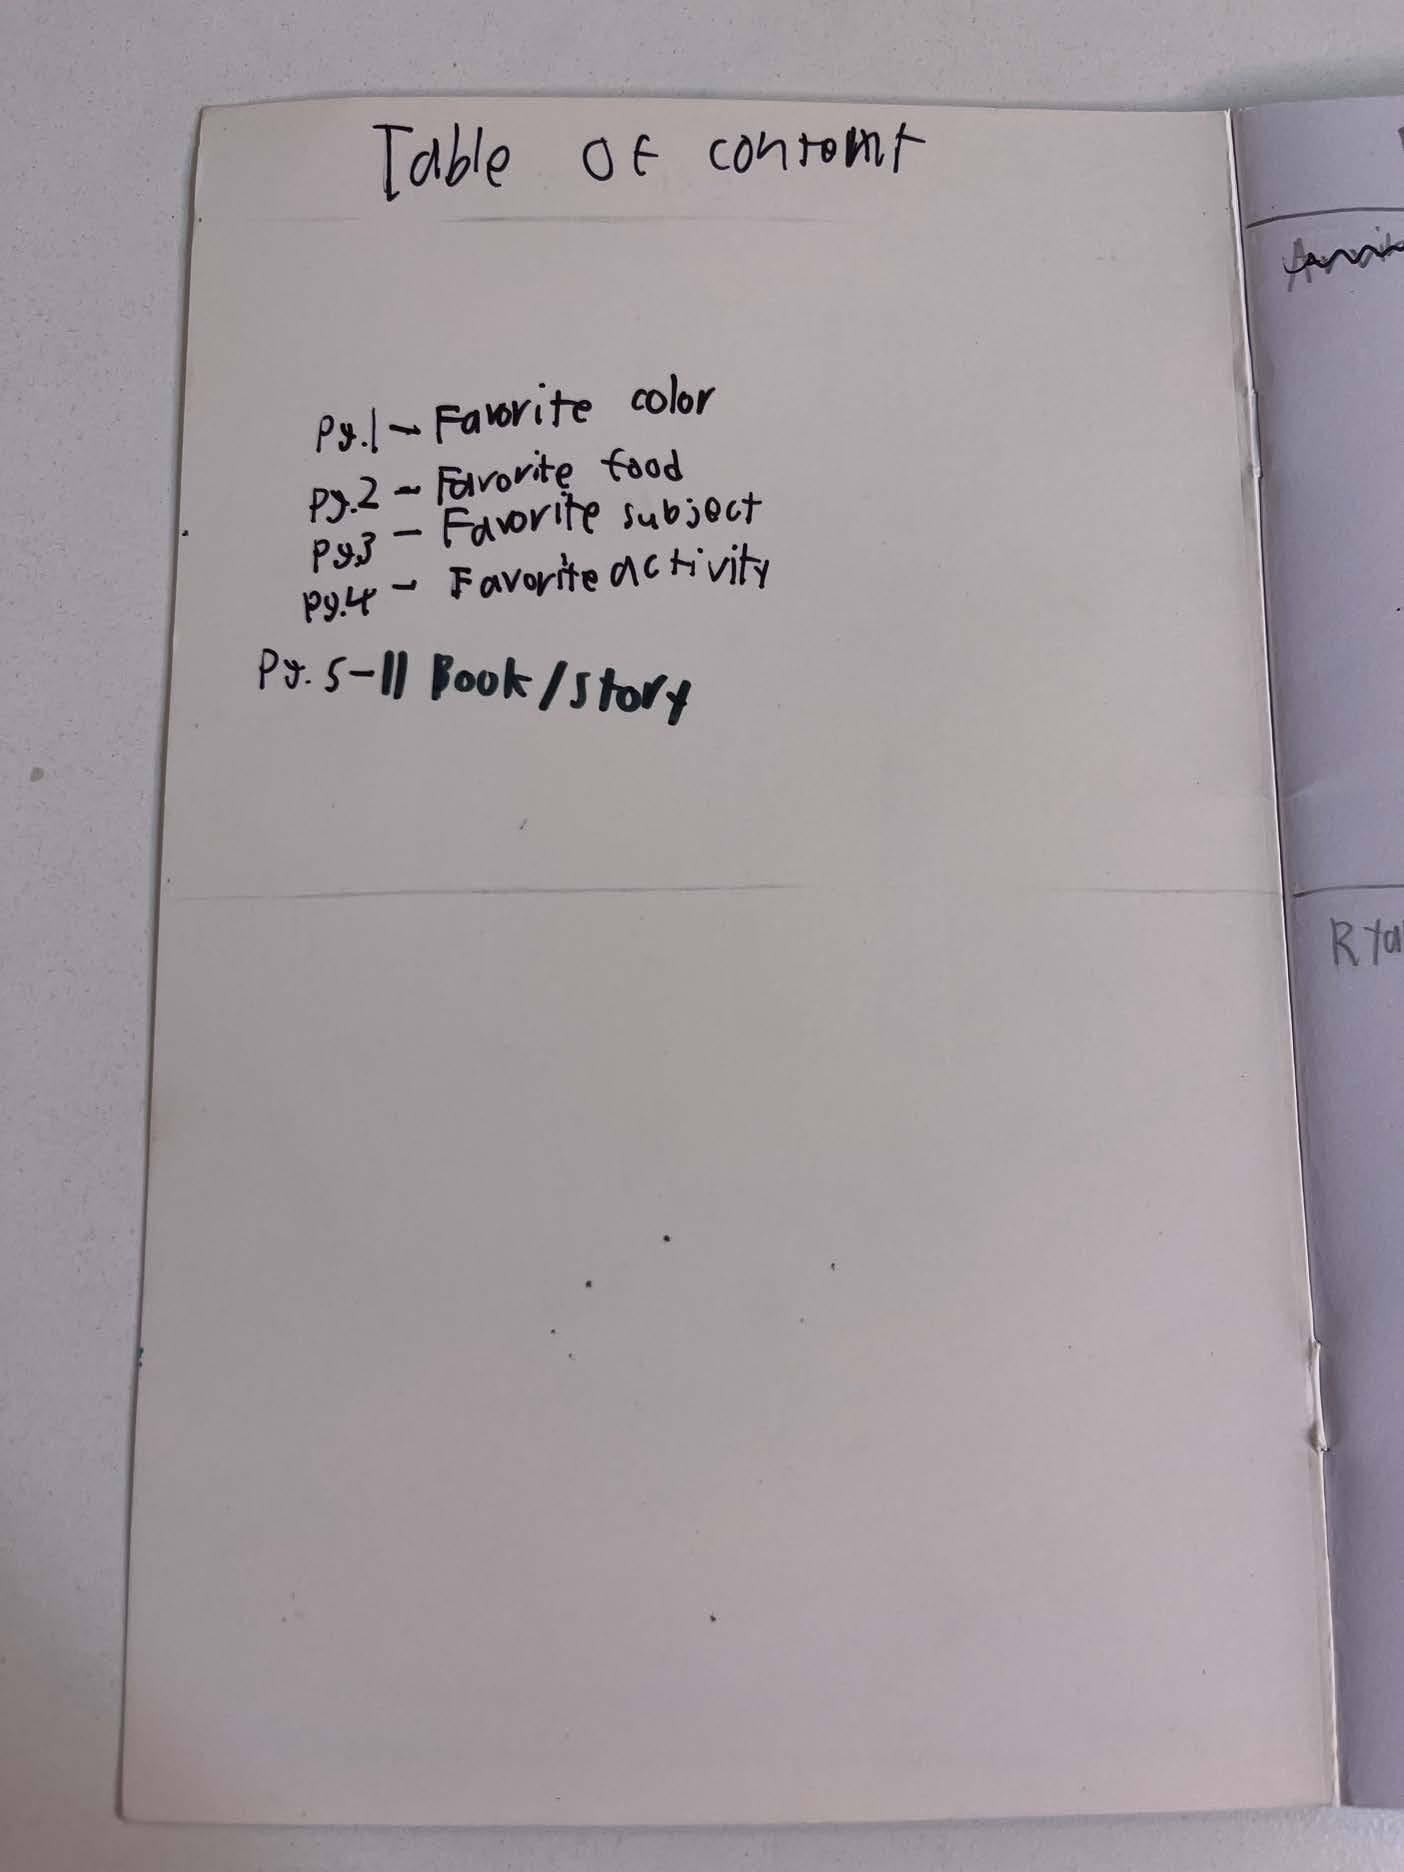 Table of contomt
Pg.1 - Favorite color
Pg.2 - Favorite food
Pg.3 - Favorite subject
Pg.4 - Favorite activity
Pg. 5-11 Book/story